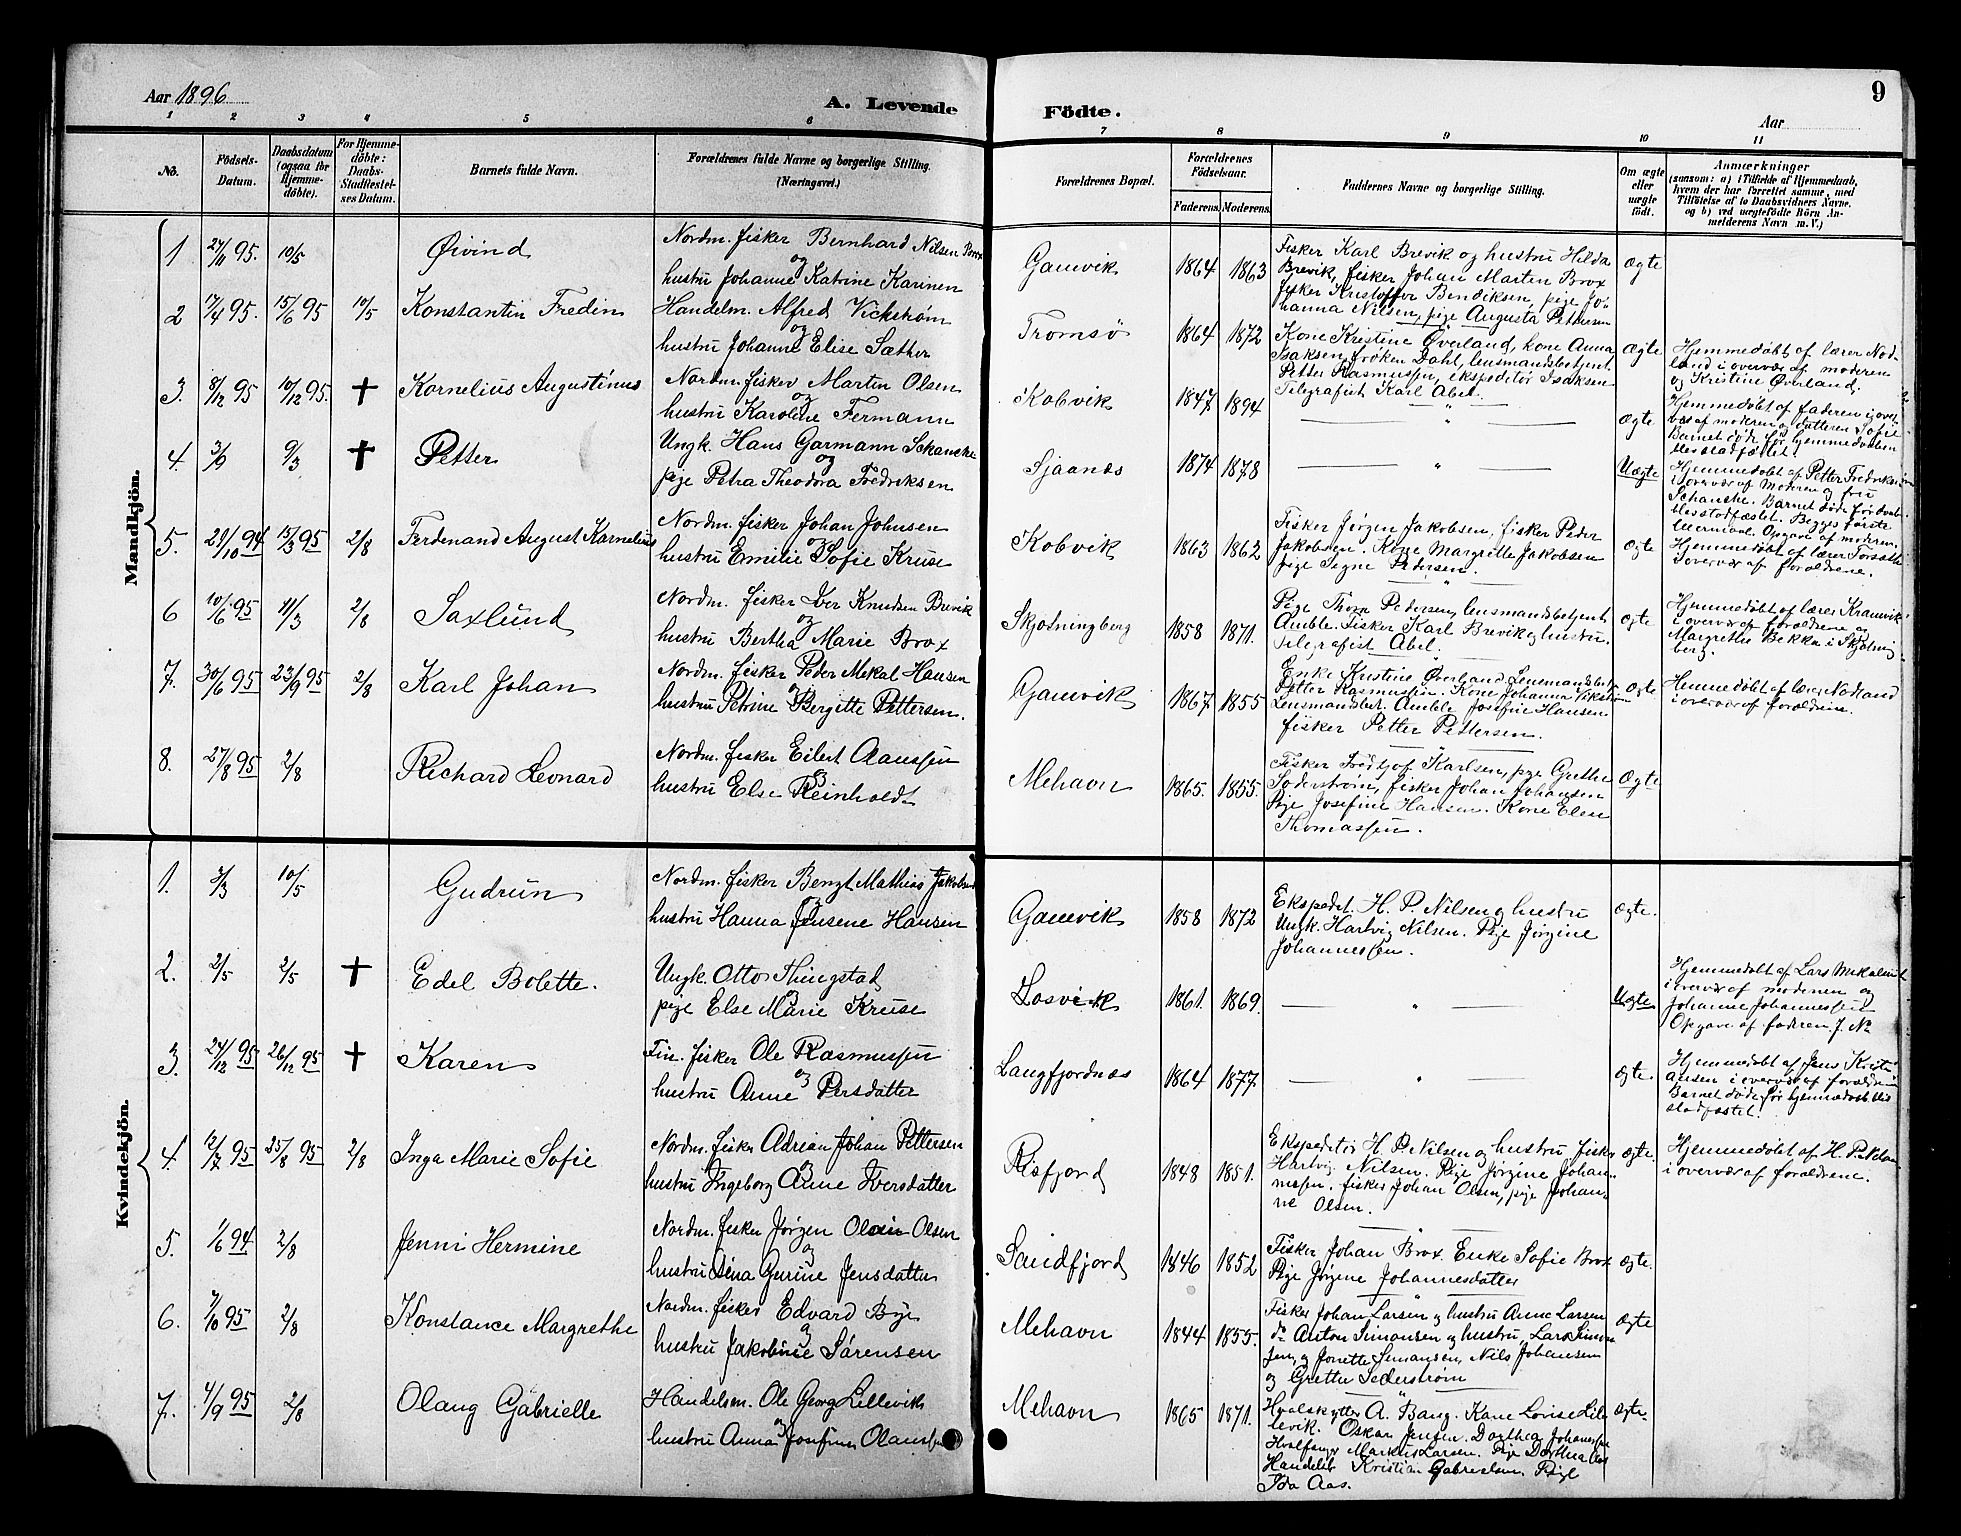 Aar 1896
A. Levende
Födte.
9
Aar
1 2 3 4 5 6 7 8 9 10 11
No.
Födsels-Datum.
Daabsdatum (ogsaa for Hjemme-döbte).
For Hjemme-döbte: Daabs-Stadfæstel-ses Datum.
Barnets fulde Navn.
Forældrenes fulde Navne og borgerlige Stilling. (Næringsvei.)
Forældrenes Bopæl.
Forældrenes Födselsaar.
Faderens. Moderens.
Faddernes Navne og borgerlige Stilling.
Om ægte eller uægte født.
Anmærkninger
(saasom: a) i Tilfælde af Hjemmedaab,
hvem der har forrettet samme, med
Tilföielse af to Daabsvidners Navne.
og b) ved uægtefödte Börn An-
melderens Navn m. V.)
Mandkjön.
1 27/11 95. 10/5 Øivind
Nordm. fisker Bernhard Nilsen Brox
og
hustru Johanne Katrine Karinen
Gamvik 1864 1863
Fisker Karl Brevik og hustru Hilda
Brevik, fisker Johan Marten Brox
fisker Kristoffer Bendiksen, pige Jo-
hanna Nilsen, pige Augusta Pettersen
Ægte
2 17/4 95. 15/6 95 10/5 Konstantin Fredin
Handelm. Alfred Vickstrøm
og
hustru Johanne Elise Sæther
Tromsö 1864 1872
Kone Kristine Øverland, kone Anna
Isaksen, frøken Dahl, lensmandsbetjent
Petter Rasmussen, ekspeditør Isaksen
Telegrafist Karl Abel.
Ægte
Hjemmedøbt af lærer Nod-
land i overvær af moderen
og Kristine Øverland.
3. 8/12 95 10/12 95. ✝ Kornelius Augustinus
Nordm. fisker Martin Olsen
og
hustru Karoline Fermann
Kobvik 1847 1894
— " —
Ægte
Hjemmedøbt af faderen i over
vær af moderen og datteren Sofie
Barnet døde før hjemmedaaben
blev stadfæstet.
4. 3/9 9/3 ✝ Petter
Ungk. Hans Garmann Schancke
og
pige Petra Theodora Fredriksen
Sjaanæs 1874 1878
— " —
Uægte
Hjemmedøbt af Petter Fredriksen
i overvær af Moderen og fru
Schanche. Barnet døde før daaben
blev stadfæstet. Begges første
leiermaal. Opgave af moderen.
5. 29/10 94 15/3 95 2/8 Ferdinand August Kornelius
Nordm. fisker Johan Johnsen
og
hustru Emilie Sofie Kruse
Kobvik 1863 1862
Fisker Jørgen Jakobsen, fisker Peder
Jakobsen. Kone Margrette Jakobsen
pige Signe Pedersen.
Ægte
Hjemmedøbt af lærer
i overvær af forældrene.
6 10/6 95 11/3 2/8 Saxlund
Nordm. fisker Iver Knudsen Brevik
og
hustru Bertha Marie Brox
Skjøtningberg 1858 1871.
Pige Thora Pedersen, lensmandsbetjent
Amble. Fisker Karl Brevik og hustru.
Telegrafist Abel.
Ægte
Hjemmedøbt af lærer Kramvik
i overvær af forældrene og
Margrethe Bekka i Skjötning
berg.
7. 30/6 95 23/9 95 2/8 Karl Johan
Nordm. fisker Peder Mekal Hansen
og
hustru Petrine Bergitte Pettersen.
Gamvik 1867 1855
Enke Kristine Øverland Lensmandsbet.
Petter Rasmussen. Kone Johanna Vikstrøm
Lensmandsbet. Amble Josefine Hansen
fisker Petter Pettersen.
Ægte
Hemmedøbt af lærer Nodland
i overvær af forældrene.
8. 27/8 95 2/8 Richard Leonard
Nordm. fisker Eilert Aanssen
og
hustru Else Reinholdt
Mehavn 1865. 1855.
Fisker Fredtjof Karlsen, pige Grethe
Söderstrøm, fisker Johan Johansen
Pige Josefine Hansen. Kone Elen
Thomassen.
Ægte
Kvindekjön.
1. 3/3 10/5 Gudrun
Nordm. fisker Bengt Mathias Jakobsen
og
hustru Hanna Jensene Hansen
Gamvik 1858 1872
Ekspedit. H. P. Nilsen og hustru
Ungk. Hartvig Nilsen. Pige Jørgine
Johannessen.
Ægte.
2. 2/5 2/5 ✝ Edel Bolette.
Ungk. Otto Thingstad
og
pige Else Marie Kruse
Losvik 1861. 1869.
— " —
Uægte
Hjemmedøbt af Lars
i overvær af moderen og
Johanne Johannessen
Opgave af faderen J. No
3. 24/12 95 26/12 95 ✝ Karen
Fin. fisker Ole Rasmussen
og
hustru Anne Persdatter
Langfjordnæs 1864 1877
— " —
Ægte
Hjemmedøbt af Jens Kristi-
ansen i overvær af forældrene
Barnet døde før hjemmedaab blev
stadfæstet.
4. 12/7 95 25/8 95 2/8 Inga Marie Sofie
Nordm. fisker Adrian Johan Pettersen
og
hustru Ingeborg Anne Iversdatter
Risfjord 1848 1851.
Ekspeditør H. P. Nilsen og hustru fisker
Hartvig Nilsen. Pige Jørgine Johan-
nessen. fisker Johan Olsen, pige Johan-
ne Olsen.
Ægte.
Hjemmedøbt af H. P. Nilsen
i overvær af forældrene.
5. 1/6 94 2/8 Jenni Hermine
Nordm. fisker Jørgen Olsen
og
hustru Sina Gurine Jensdatter
Sandfjord 1846 1852
Fisker Johan Brox. Enke Sofie Brox
Pige Jørgine Johannesdatter
Ægte.
6. 7/10 95 2/8 Konstance Margrethe
Nordm. fisker Edvard Bye
og
hustru Jakobine Sørensen
Mehavn 1844 1855.
Fisker Johan Larsen og hustru Anne Larsen
do Anton Simonsen og hustru, Lars Simon
sen, og Jonette Simonsen, Nils Johansen
og Grethe Sederstrøm
Ægte
7. 4/9 95 2/8 Olaug Gabrielle
Handelsm. Ole Georg Lillevik
og
hustru Anna Josefine Olaussen
Mehavn 1865 1871.
Hvalskytter A. Bang. Kone Lovise Lil-
levik. Oskar Jensen. Dorthea Johanessen
Hvalfanger Markus Larsen. Pige Dorthea Aas
Handelsb Kristian Gabrielsen. Pige
Ida Aas.
Ægte.